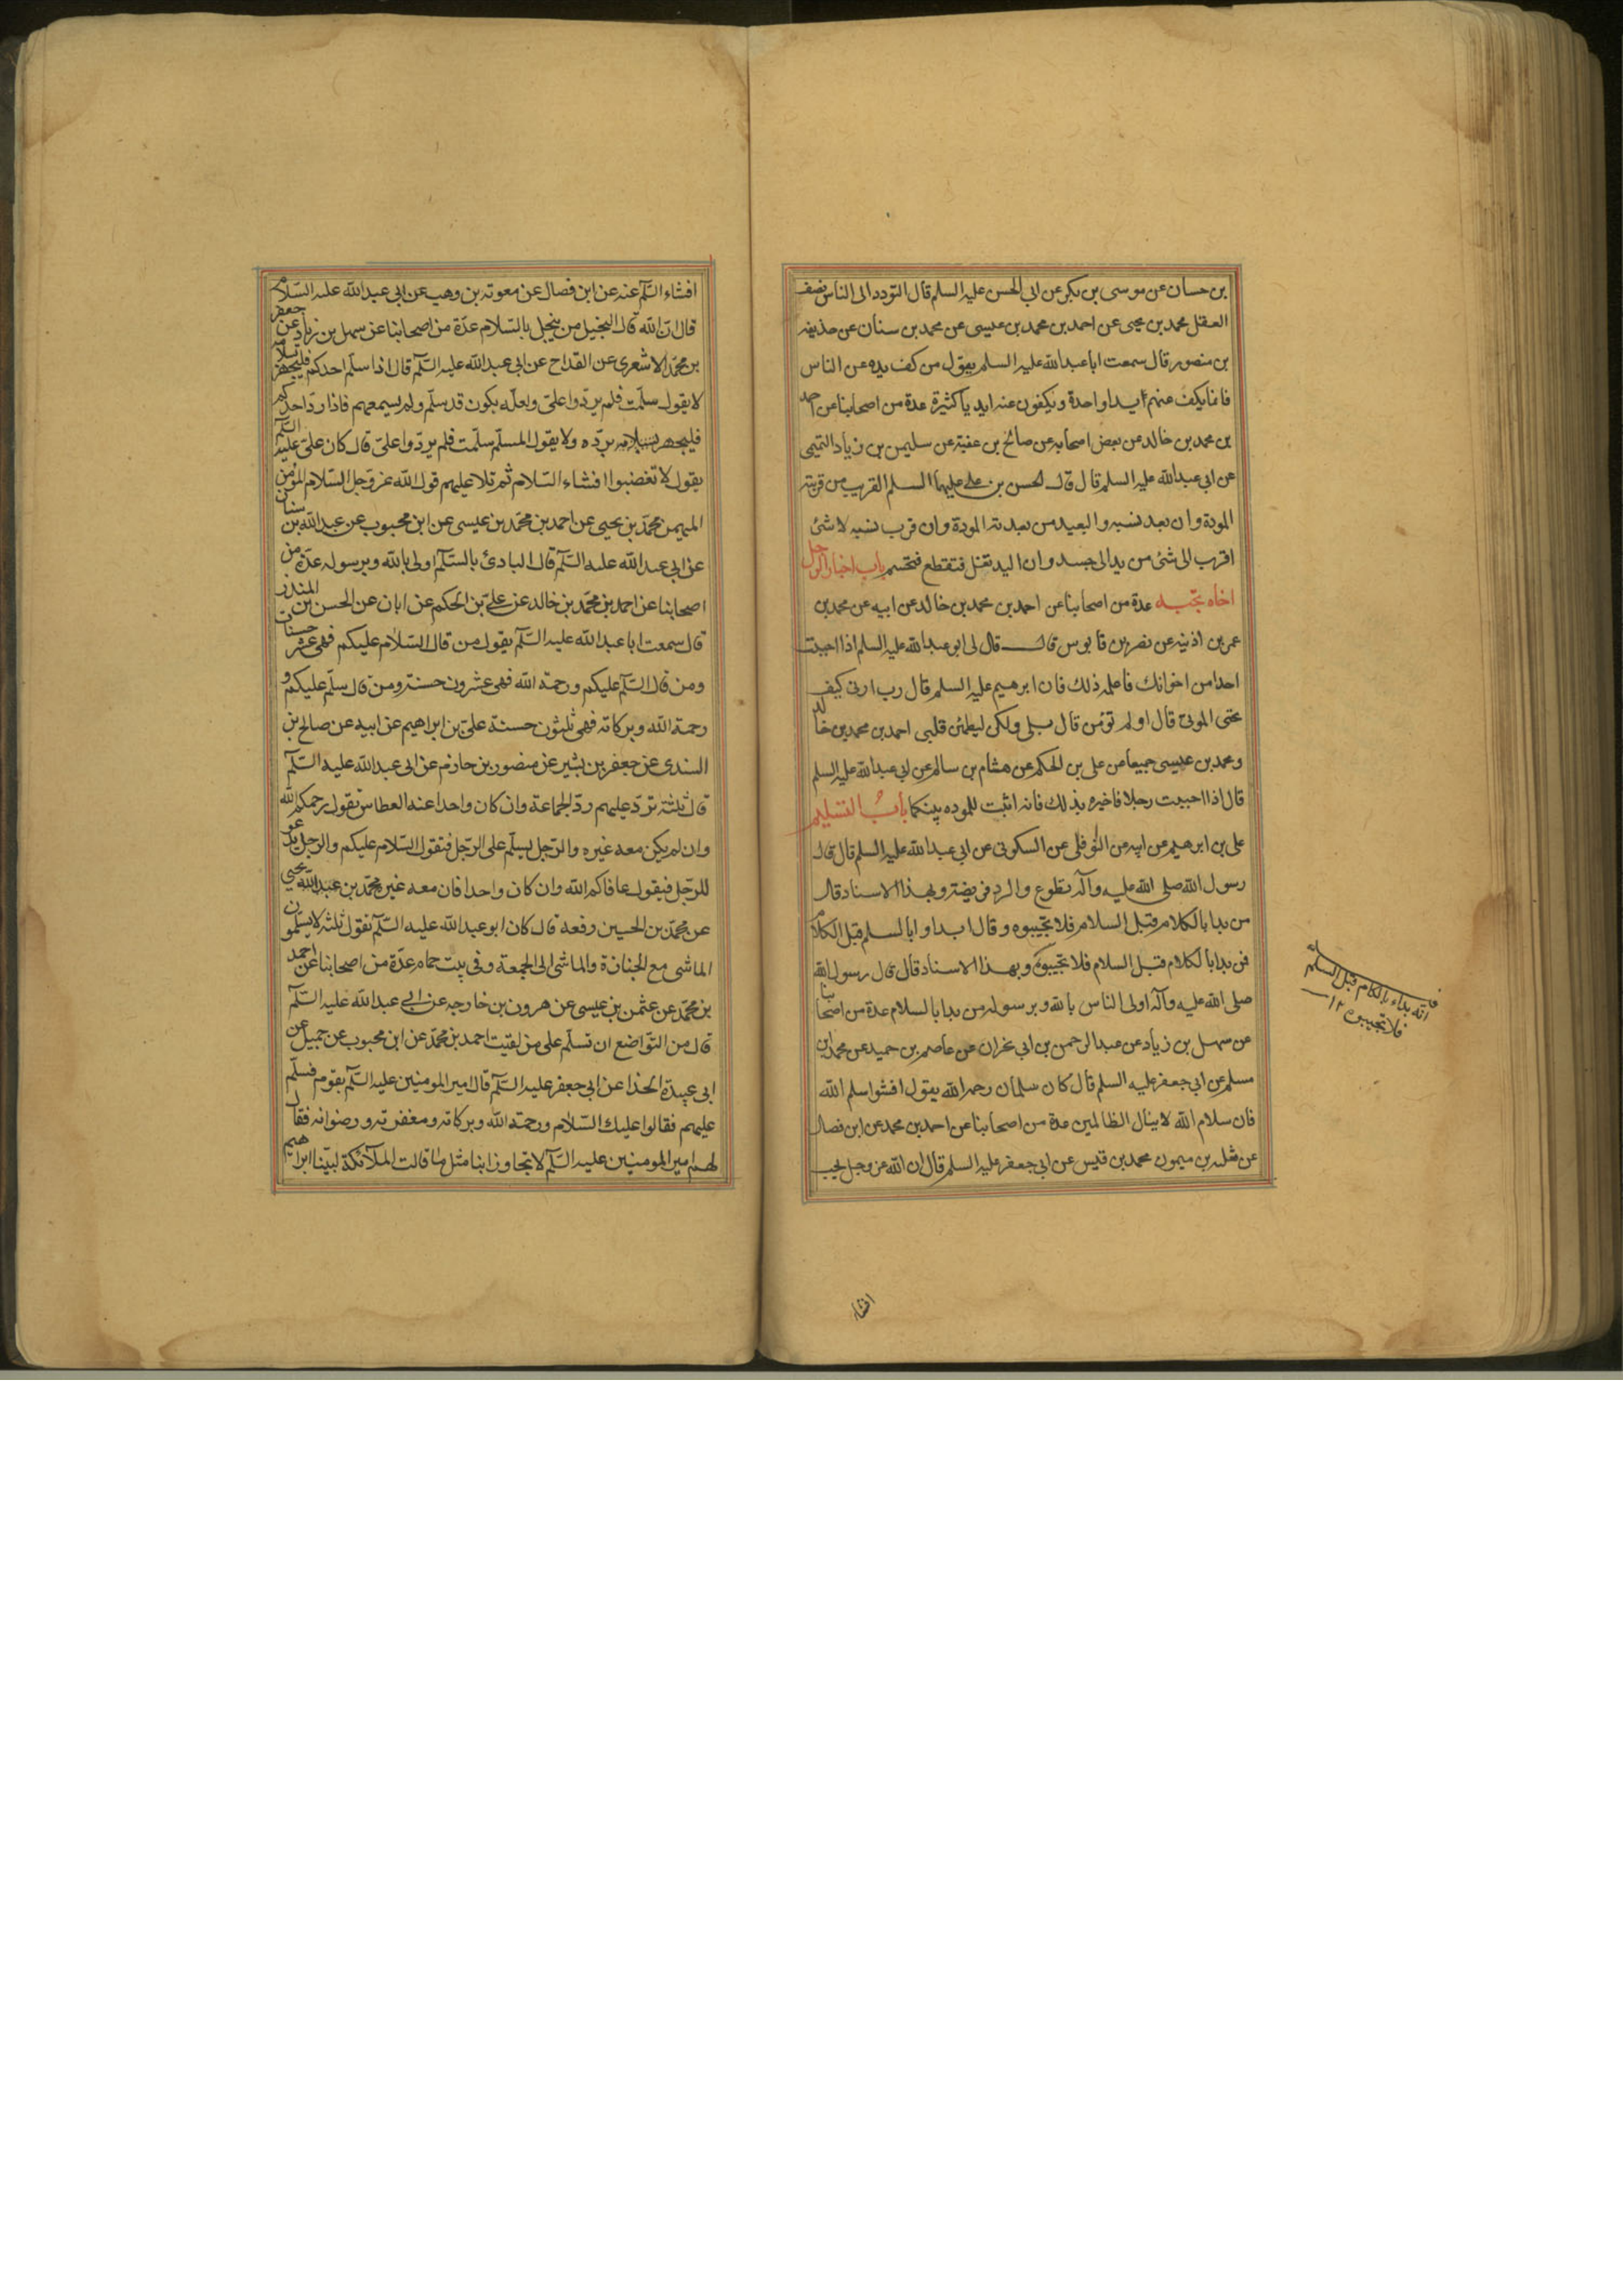 بن حسان عن موسى بن بكر عن ابى الحسن عليه السلم قال التودد الى الناس نصف
العقل محمد بن يحيى عن احمد بن محمد بن عيسى عن محمد بن سنان عن حذيفه
بن منصور قال سمعت ابا عبد الله عليه السلم يقول من كف يده عن الناس
فانما يكف عنهم يدا واحدة ويكفون عنه ايديا كثيرة عدة من اصحابنا عن احمد
بن محمد بن خالد عن بعض اصحابه عن صالح بن عقبة عن سليمن بن زياد التميمى
عن ابى عبد الله عليه السلم قال قال الحسن بن على عليهما السلم القريب من قربته
المودة وان بعد نسبه والبعيد من بعدته المودة وان قرب نسبه لا شئ
اقرب الى شئ من يد الى جسد وان اليد تغل فتقطع فتحسم باب اخبار الرجل
اخاه بحبه عدة من اصحابنا عن احمد بن محمد بن خالد عن ابيه عن محمد بن
عمر بن اذينه عن نصر بن قابوس قال قال لى ابو عبد الله عليه السلم اذا احببت
احدا من اخوانك فاعلمه ذلك فان ابرهيم عليه السلم قال رب ارنى كيف
تحيى الموتى قال اولم تؤمن قال بلى ولكن ليطمئن قلبى احمد بن محمد بن خالد
ومحمد بن عيسى جميعا عن على بن الحكم عن هشام بن سالم عن ابى عبد الله عليه السلم
قال اذا احببت رجلا فاخبره بذلك فانه اثبت للموده بينكما باب التسليم
على بن ابرهيم عن ابيه عن النوفلى عن السكونى عن ابى عبد الله عليه السلم قال قال
رسول الله صلى الله عليه وآله تطوع والرد فريضة وبهذا الاسناد قال
من بدا بالكلام قبل السلام فلا تجيبوه وقال ابداوا بالسلم قبل الكلام
فمن بدا بالكلام قبل السلام فلا تجيبوه وبهذا الاسناد قال قال رسول الله
صلى الله عليه وآله اولى الناس بالله وبرسوله من بدا بالسلام عدة من اصحابنا
عن سهل بن زياد عن عبد الرحمن بن ابى نجران عن عاصم بن حميد عن محمد بن
مسلم عن ابى جعفر عليه السلم قال كان سلمان رحمه الله يقول افشوا سلم الله
فان سلام الله لا ينال الظالمين عدة من اصحابنا عن احمد بن محمد عن ابن فضال
عن ثعلبه بن ميمون محمد بن قيس عن ابى جعفر عليه السلم قال ان الله عز وجل يحب
بداء بالكلام قبل السلم
فلا تجيبوه ١٢
افشاء
افشاء السّلم عنه عن ابن فضال عن معوية بن وهب عن ابى عبد الله عليه السّلام
قال انّ الله قال البخيل من يبخل بالسّلام عدّة من اصحابنا عن سهل بن زياد عن جعفر
بن محمّد الاشعرى عن القداح عن ابى عبد الله عليه السّلم قال اذا سلّم احدكم فليجهر بسلامه
لا يقول سلّمت فلم يردّوا علىّ ولعلّه يكون قد سلّم ولم يسمعهم فاذا ردّ احدكم
فليجهر بردّه ولا يقول المسلّم سلّمت فلم يردّوا علىّ قال كان علىّ عليه السّلم
يقول لا تغضبوا افشاء السّلام ثم تلا عليهم قول الله عزّ وجل السّلام المؤمن
المهيمن محمّد بن يحيى عن احمد بن محمّد بن عيسى عن ابن محبوب عن عبد الله بن سنان
عن ابى عبد الله عليه السّلم قال البادئ بالسّلم اولى بالله وبرسوله عدّة من
اصحابنا عن احمد بن محمّد بن خالد عن علىّ بن الحكم عن ابان عن الحسن بن المنذر
قال سمعت ابا عبد الله عليه السّلم يقول من قال السّلام عليكم فهى عشر حسنات
ومن قال السّلم عليكم ورحمة الله فهى عشرون حسنة ومن قال سلّم عليكم و
رحمة الله وبركاته فهى ثلثون حسنة علىّ بن ابراهيم عن ابيه عن صالح بن
السندى عن جعفر بن بشير عن منصور بن حازم عن ابى عبد الله عليه السّلم
قال ثلثة تردّ عليهم ردّ الجماعة وان كان واحدا عند العطاس تقول يرحمكم الله
وان لم يكن معه غيره والرّجل يسلّم على الرّجل فتقول السّلام عليكم والرجل يدعو
للرّجل فيقول عافاكم الله وان كان واحدا فان معه غيره محمّد بن عبد الله يحيى
عن محمّد بن الحسين رفعه قال كان ابو عبد الله عليه السّلم يقول ثلثة لا يسلّمون
الماشى مع الجنازة والماشى الى الجمعة وفى بيت حمام عدّة من اصحابنا عن احمد
بن محمّد عن عثمن بن عيسى عن هرون بن خارجه عن ابى عبد الله عليه السّلم
قال من التّواضع ان تسلّم على من لقيت احمد بن محمّد عن ابن محبوب عن جميل عن
ابى عبيدة الحذا عن ابى جعفر عليه السّلم قال امير المومنين عليه السّلم بقوم فسلّم
عليهم فقالوا عليك السّلام ورحمة الله وبركاته ومغفرته ورضوانه فقال
لهم امير المومنين عليه السّلم لا تجاوزا بنا مثل ما قالت الملآئكة لبيّنا ابراهيم